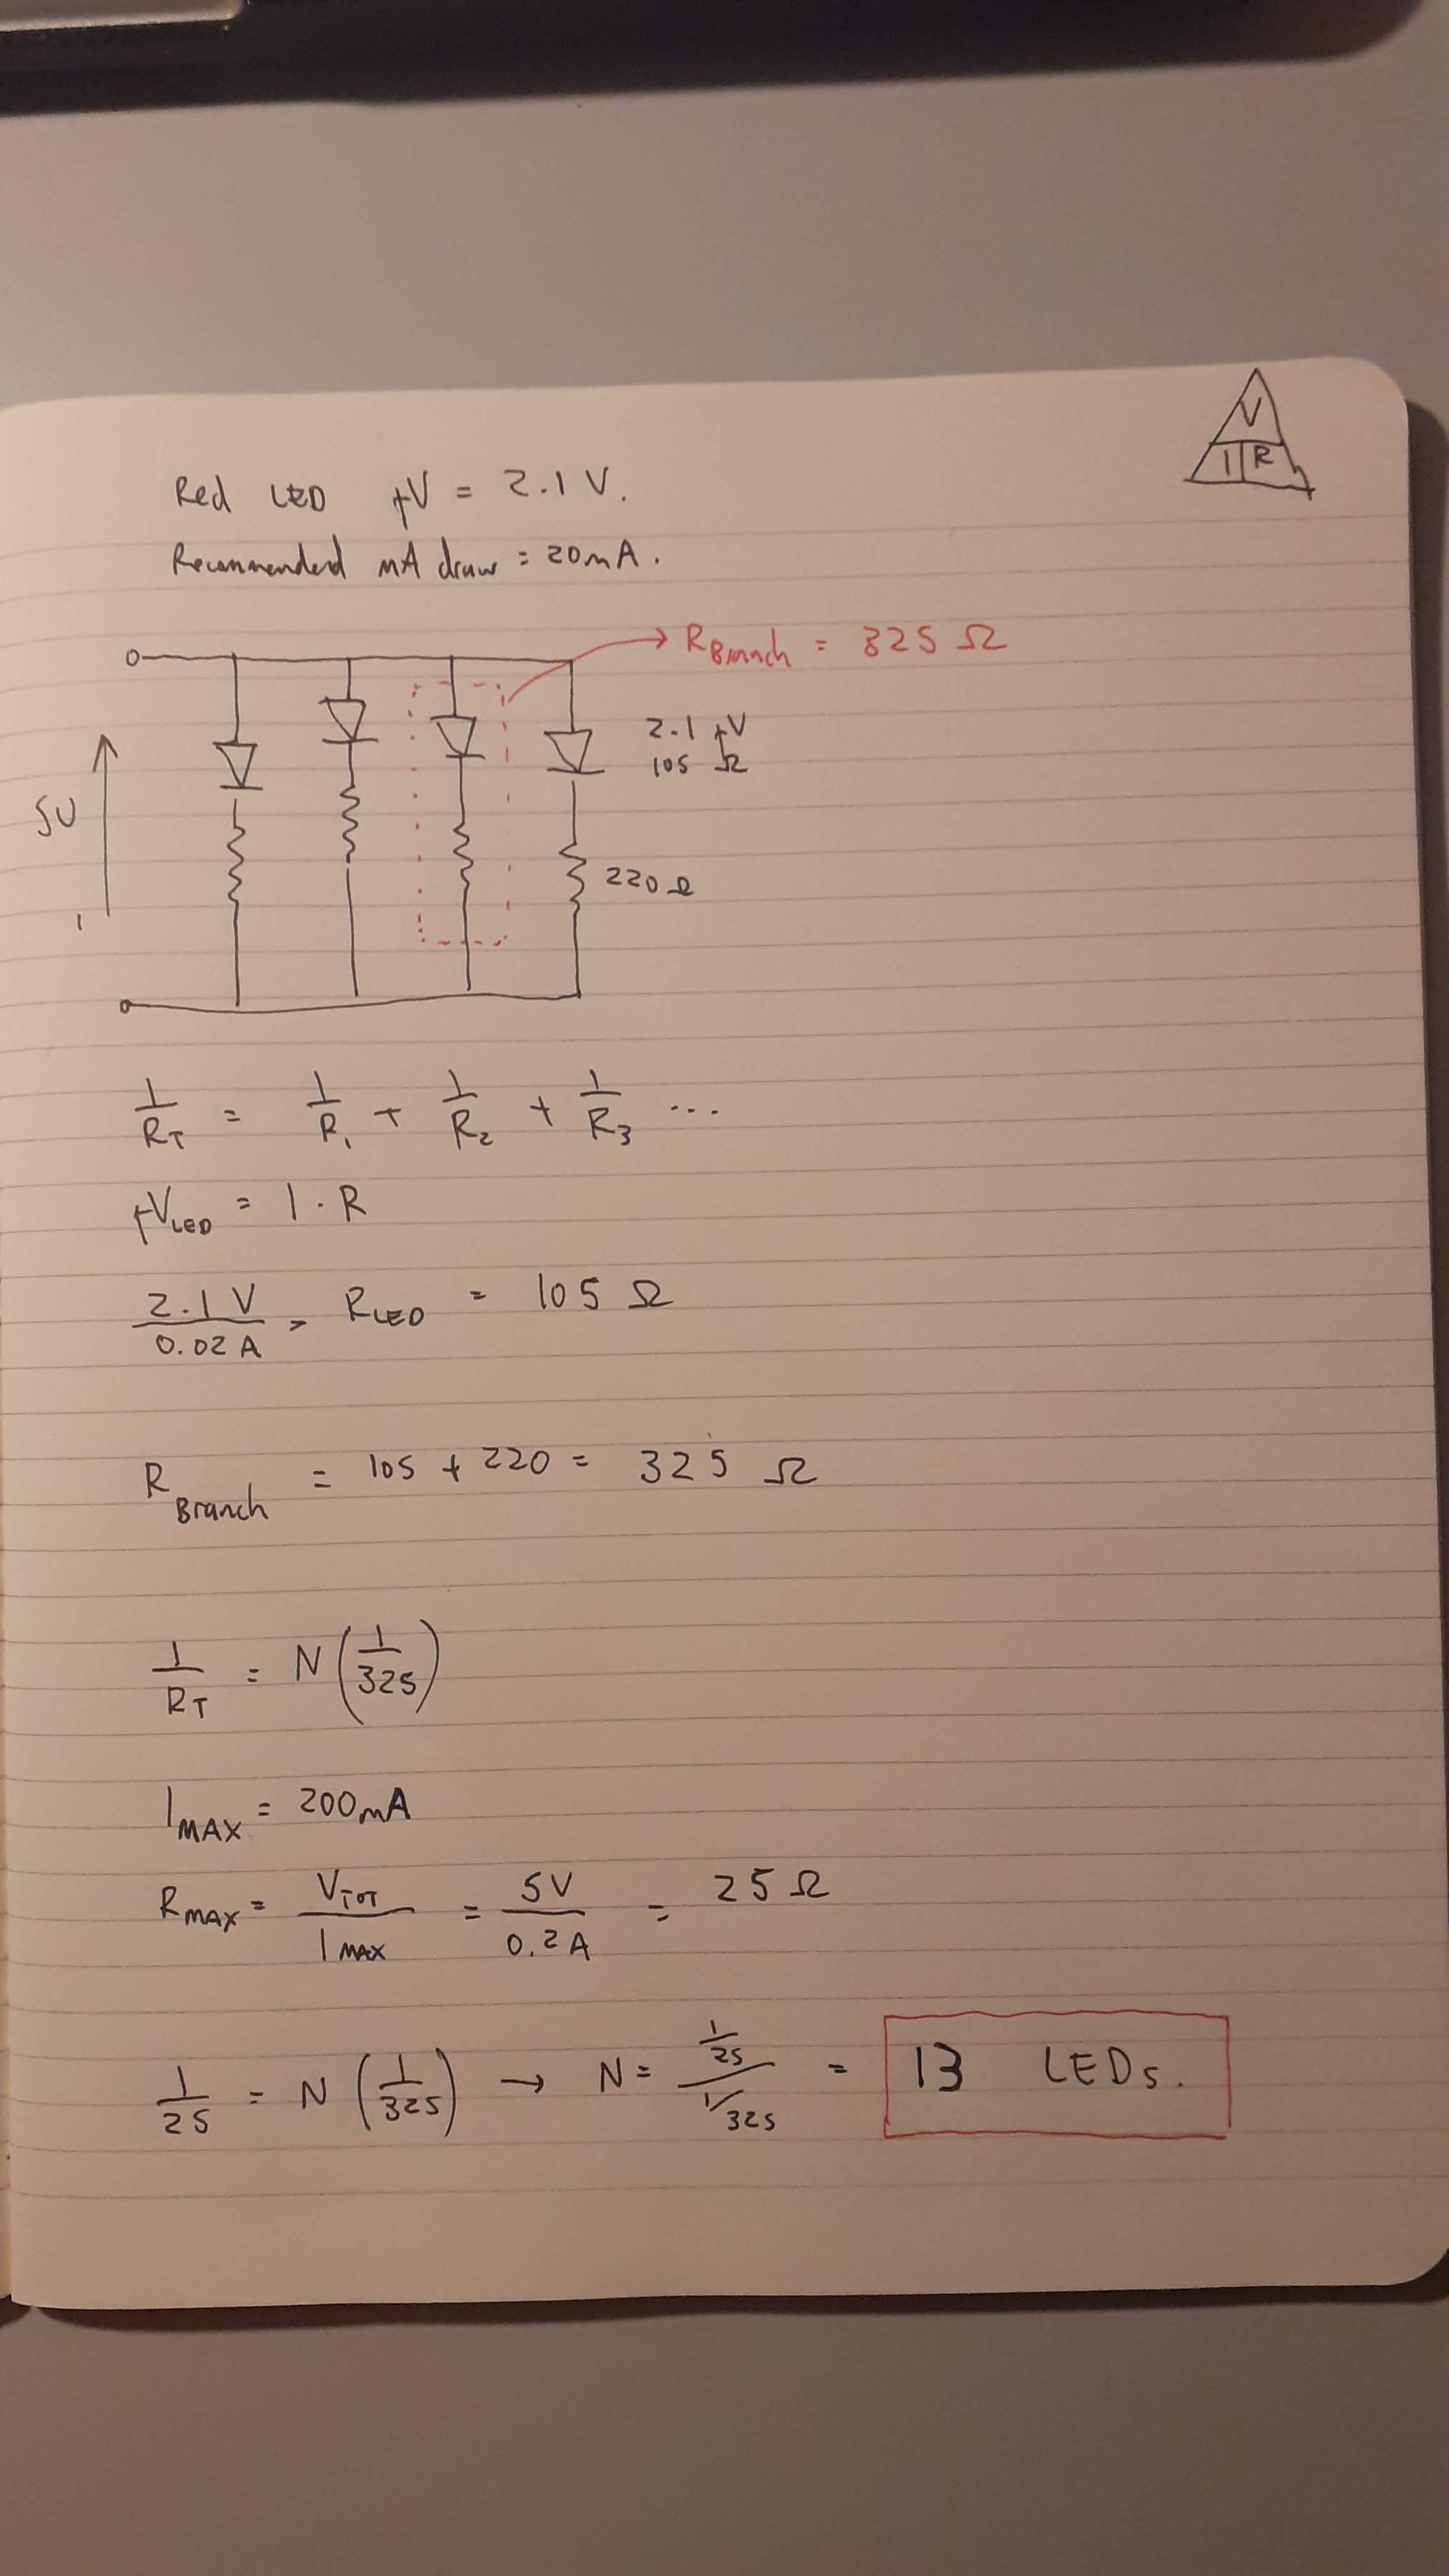 V
I R
Red LED fV = 2.1 V.
Recommended mA draw = 20mA.
RBranch = 325 Ω
2.1 fV
105 Ω
5V
220 Ω
1/RT = 1/R1 + 1/R2 + 1/R3 ...
fVLED = I · R
2.1 V / 0.02 A = RLED = 105 Ω
RBranch = 105 + 220 = 325 Ω
1/RT = N(1/325)
IMAX = 200mA
RMAX = VTOT / IMAX = 5V / 0.2A = 25 Ω
1/25 = N(1/325) → N = 1/25 / 1/325 = 13 LEDs.